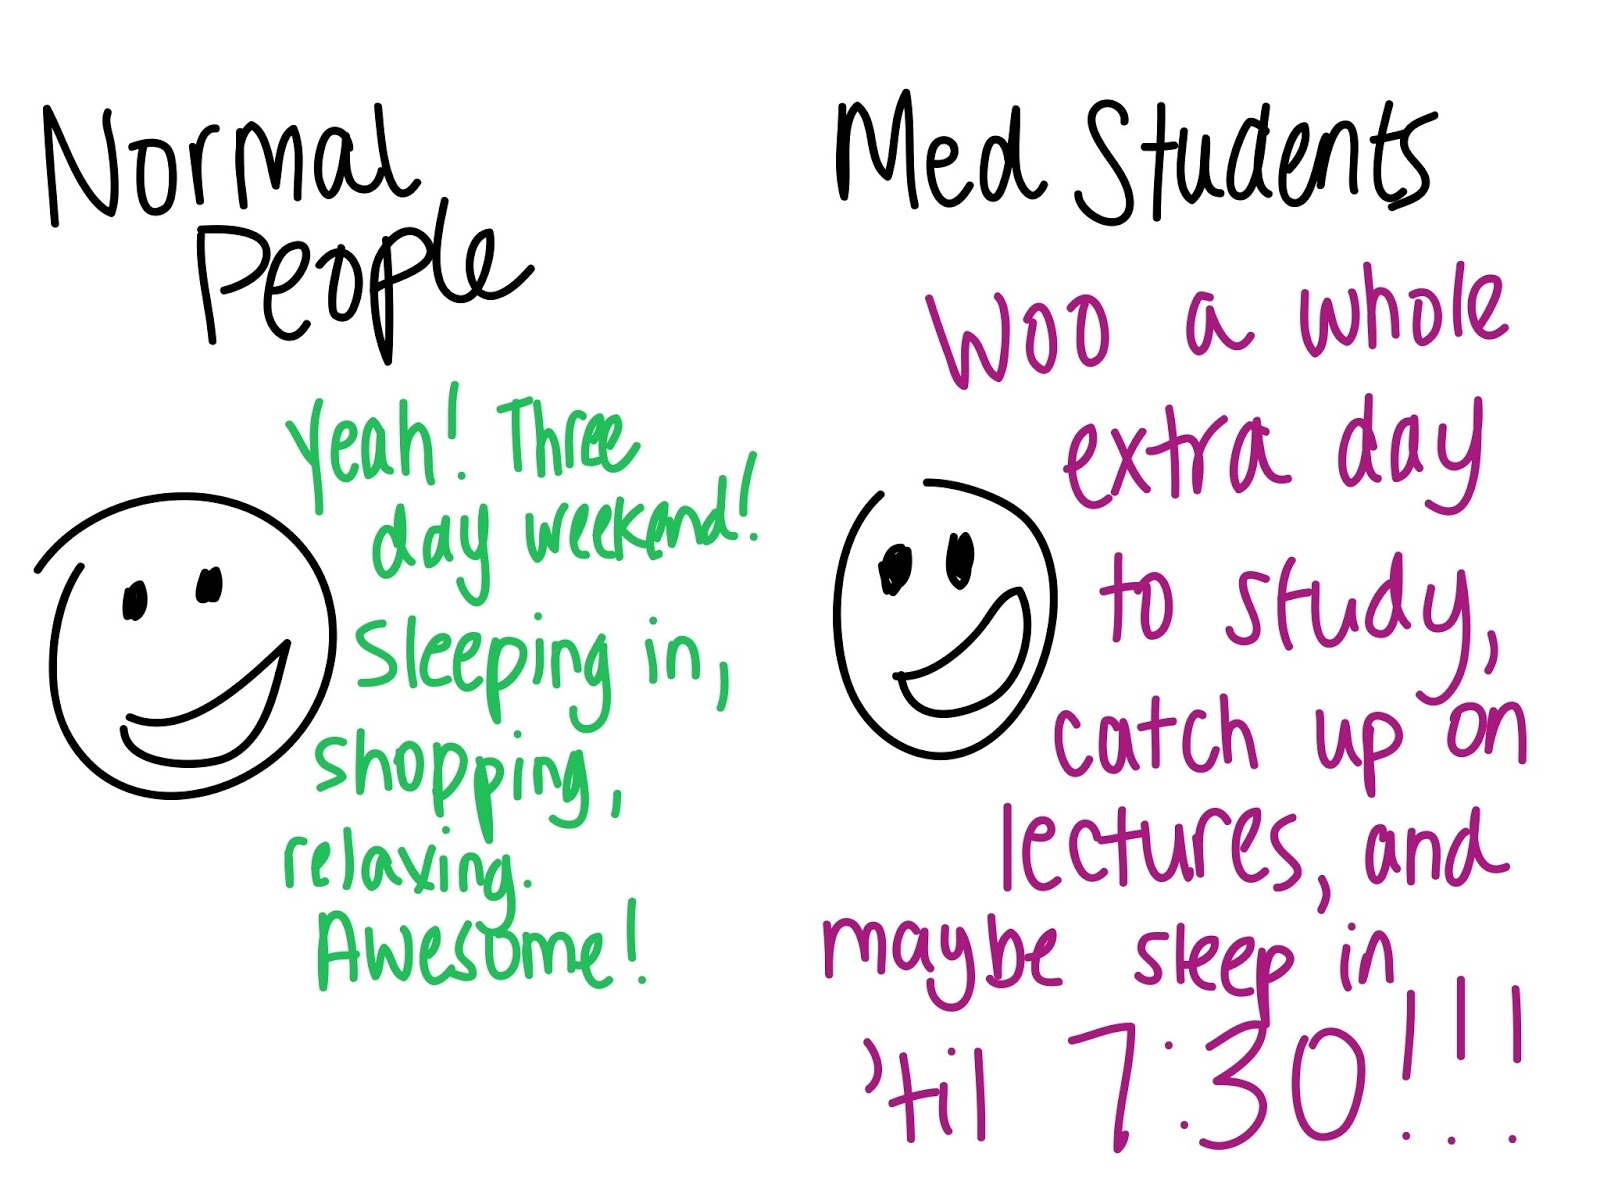 Normal
People
Yeah! Three
day weekend!
Sleeping in,
shopping,
relaxing.
Awesome!
Med Students
Woo a whole
extra day
to study,
catch up on
lectures, and
maybe sleep in
'til 7:30!!!